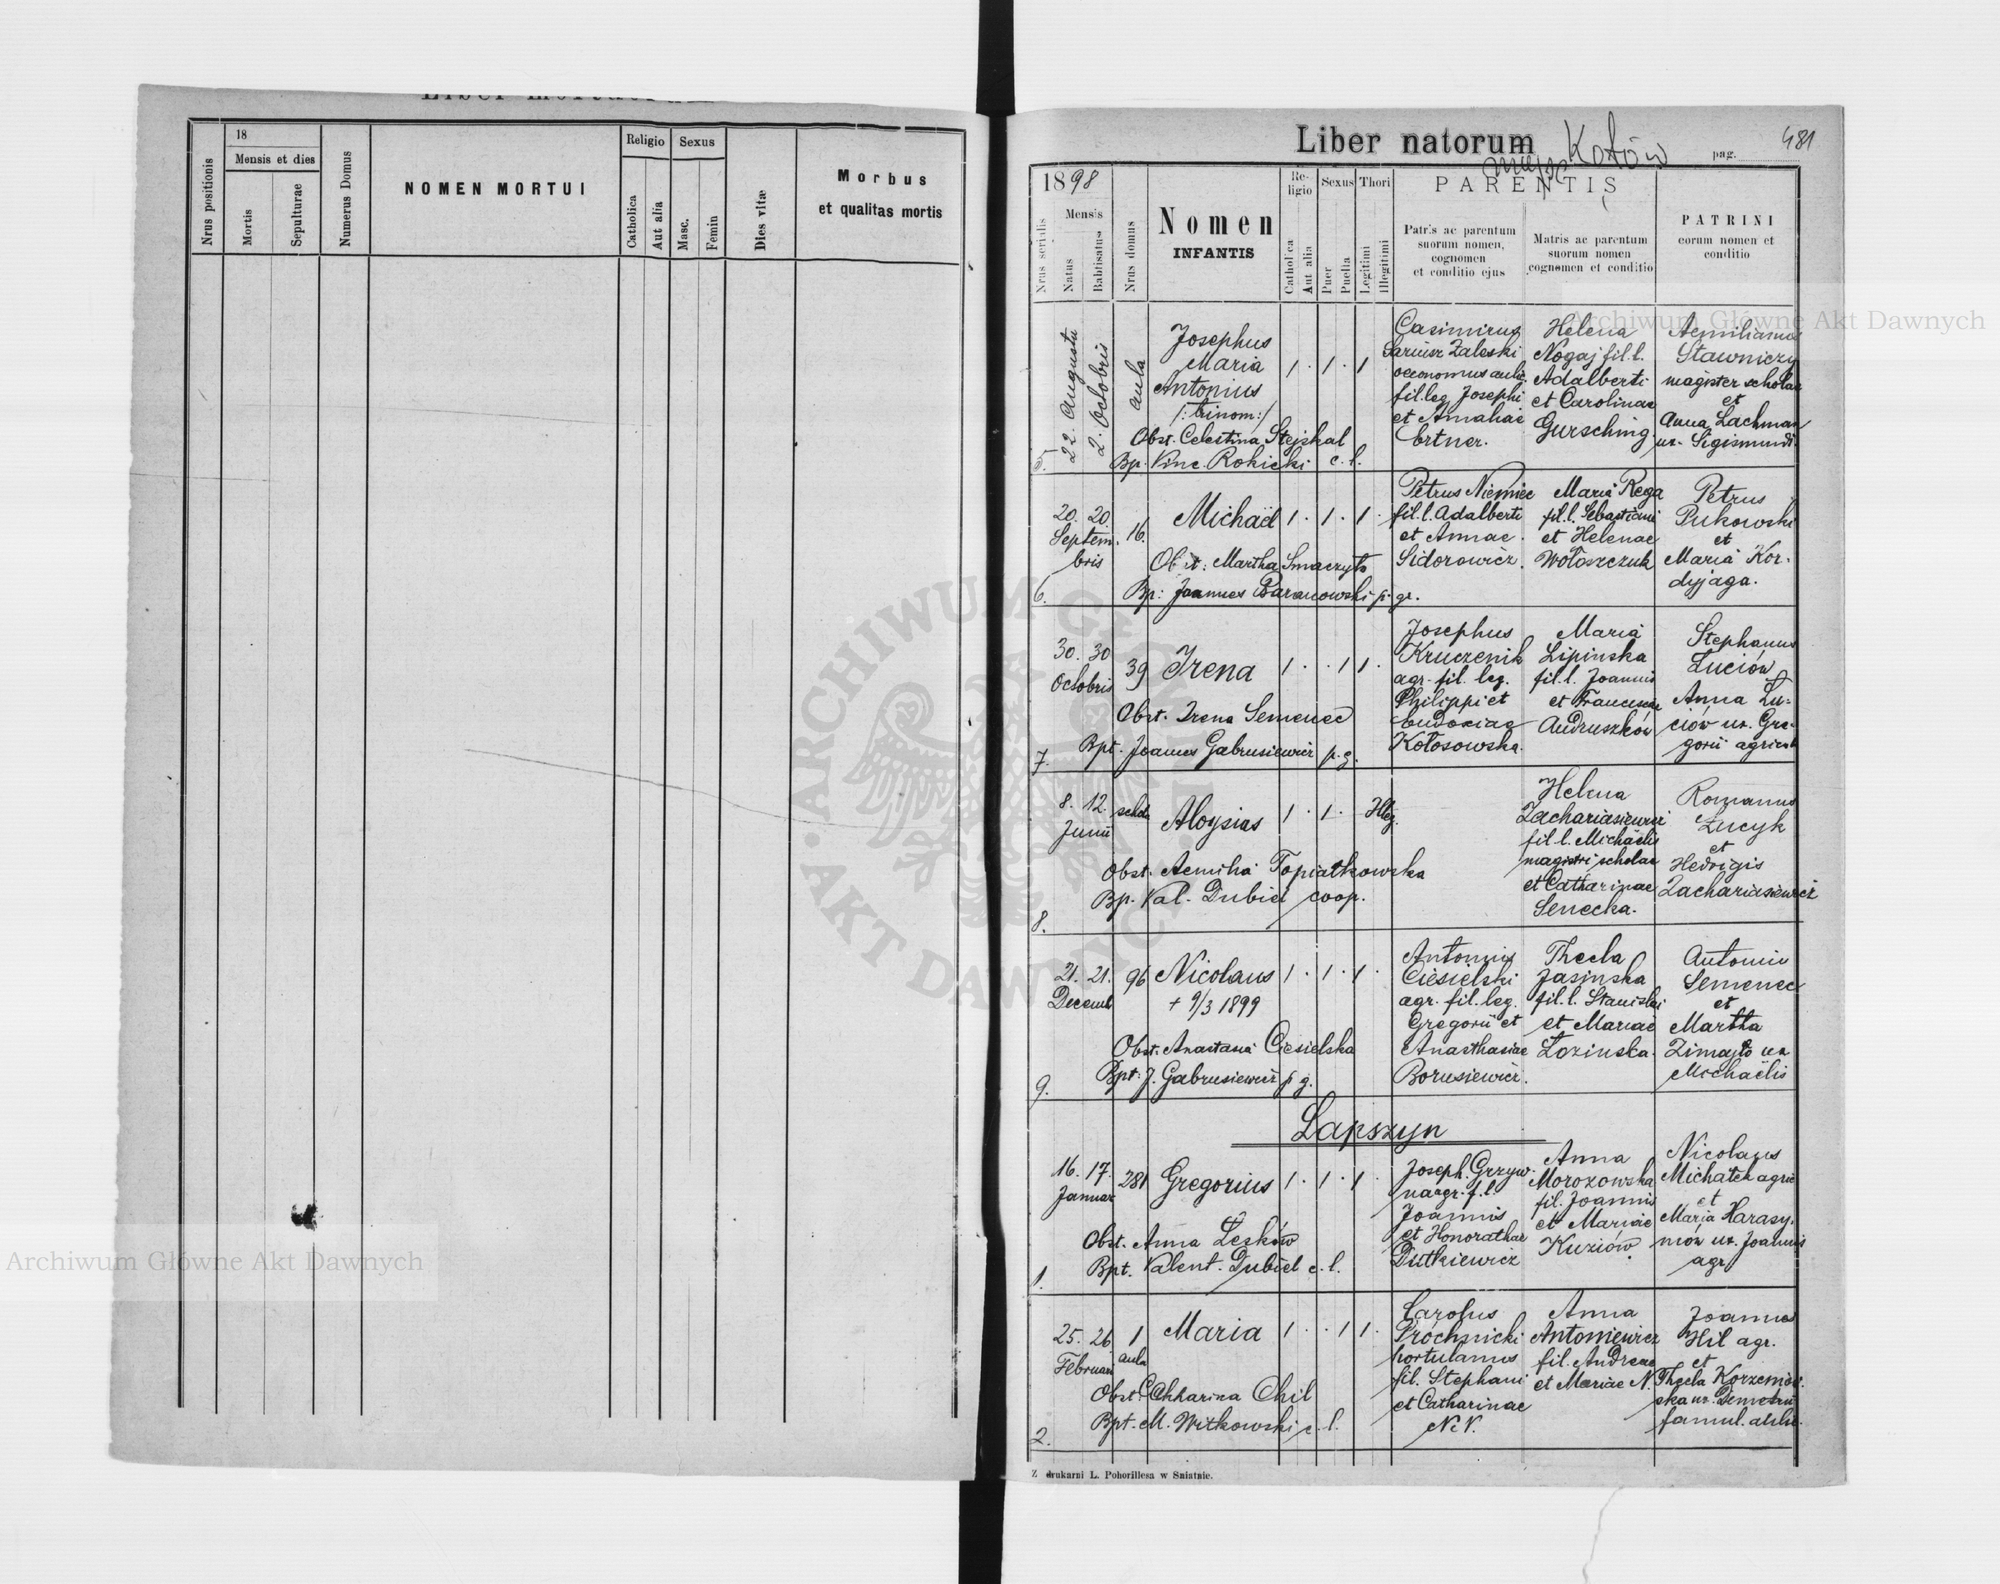 18
Religio
Sexus
Mensis et dies
Nrus positionis
Mortis
Sepulturae
Numerus Domus
NOMEN MORTUI
Catholica
Aut alia
Masc.
Femin
Dies vitæ
Morbus
et qualitas mortis
Liber natorum
Kotów
pag.
481
1898
Nrus serialis
Mensis
Natus
Babtisatus
Nrus domus
Nomen
INFANTIS
Re-
ligio
Catholica
Aut alia
Sexus
Puer
Puella
Thori
Legitimi
Illegitimi
PARENTIS
Patris ac parentum
suorum nomen,
cognomen
et conditio ejus
Matris ac parentum
suorum nomen
cognomen et conditio
PATRINI
eorum nomen et
conditio
5.
22. Augusti
2. Octobris
aula
Josephus
Maria
Antonius
/:trinom:/
1 . 1 . 1
Obst. Celestina Stejskal
Bp. Vinc. Rokicki c. l.
Casimirus
Zaleski
oeconomus aulic
fil. leg. Josephi
et Amaliae
Ertner.
Helena
Nogaj fil. l.
Adalberti
et Carolinae
Gursching
Aemilianus
Stawniczy
magister scholae
et
Anna Lachman
ux. Sigismundi
6.
20. 20.
Septem.
bris
16.
Michaël
1 . 1 . 1 .
Obst: Martha Smaczyło
Bp: Joannes Baranowski p. gr.
Petrus Niemiec
fil. l. Adalberti
et Annae
Sidorowicz.
Maria Rega
fil. l. Sebastiani
et Helenae
Wołoszczuk
Petrus
Pukowski
et
Maria Kor-
dyjaga.
7.
30. 30
Octobris
39
Irena
1 . . 1 1 .
Obst. Irena Semenec
Bpt. Joannes Gabrusiewicz p. g.
Josephus
Kruczenik
agr. fil. leg.
Philippi et
Eudoxiae
Kołosowska.
Maria
Lipinska
fil. l. Joannis
et Franciscae
Andruszków
Stephanus
Łuciów
Anna Łu-
ciów ux. Gre-
gorii agricol
8.
8. 12.
Junii
schola
Aloysias
1 . 1 . Illeg.
Obst. Aemilia Topiatkowska
Bp. Val. Dubiel coop.
Helena
Zachariasiewicz
fil. l. Michaëlis
magistri scholae
et Catharinae
Senecka.
Romanus
Łucyk
et
Hedvigis
Zachariasiewicz
9.
21. 21.
Decemb
96
Nicolaus
+ 9/3 1899
1 . 1 . 1 .
Obst. Anastasia Ciesielska
Bpt: J. Gabrusiewicz p g.
Antonius
Ciesielski
agr. fil. leg.
Gregorii et
Anasthasiae
Borusiewicz.
Thecla
Jasinska
fil. l. Stanislai
et Mariae
Łozinska.
Antoniu
Semenec
et
Martha
Zimajło ux
Michaëlis
Łapszyn
1.
16. 17.
Januar
281
Gregorius
1 . 1 . 1 .
Obst. Anna Leśków
Bpt. Valent. Dubiel c. l.
Joseph. Grzyw-
na agr. f. l.
Joannis
et Honorathae
Dutkiewicz
Anna
Morozowska
fil. Joannis
et Mariae
Kuziów
Nicolaus
Michałek agric
et
Maria Harasy-
mów ux. Joannis
agr
2.
25. 26
Februari
1
aula
Maria
1 . . 1 1 .
Obst. Catharina Chil
Bpt. M. Witkowski c. l.
Carolus
Próchnicki
hortulanus
fil. Stephani
et Catharinae
N. N.
Anna
Antoniewicz
fil. Andreae
et Mariae N.
Joannes
Hil agr.
et
Thecla Korzeniow-
ska ux. Demetrii
famul. aulic.
Z drukarni L. Pohorillesa w Sniatnie.
Archiwum Główne Akt Dawnych
Archiwum Główne Akt Dawnych
ARCHIWUM GŁÓWNE AKT DAWNYCH